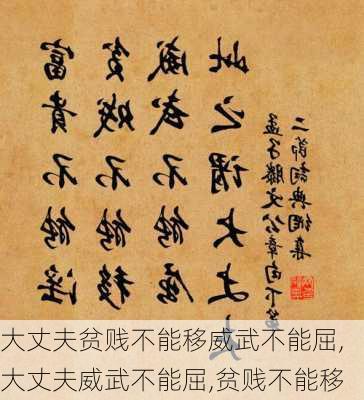 富貴不能淫
貧賤不能移
威武不能屈
此之謂大丈夫
孟子滕文公章句下第
二節詞典網集
大丈夫贫贱不能移威武不能屈,
大丈夫威武不能屈,贫贱不能移